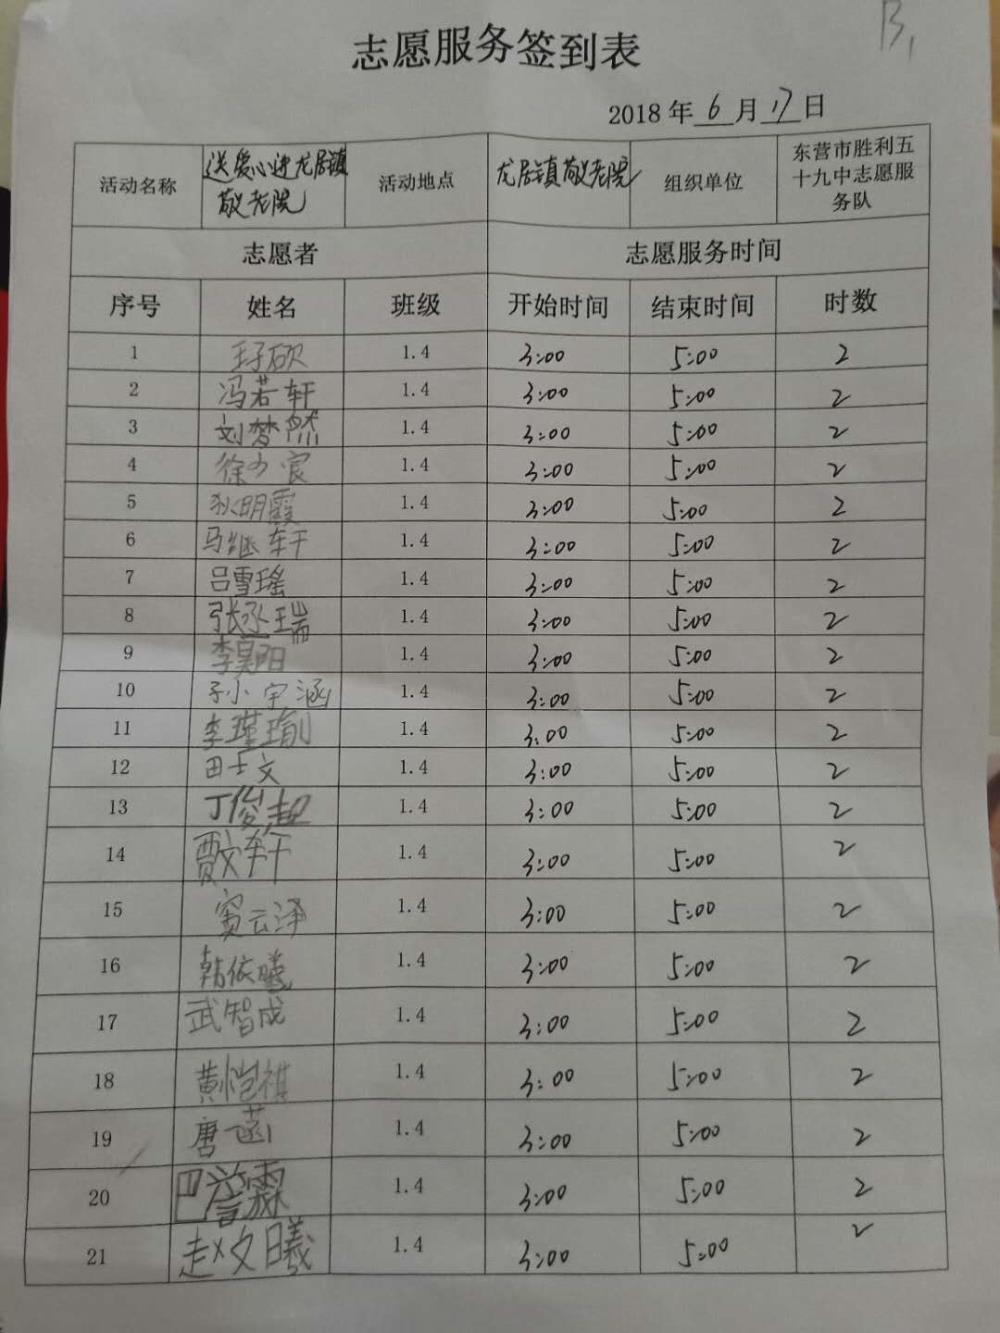 B1
志愿服务签到表
2018年6月17日
活动名称 送爱心进龙居镇敬老院 活动地点 龙居镇敬老院 组织单位 东营市胜利五十九中志愿服务队
志愿者 志愿服务时间
序号 姓名 班级 开始时间 结束时间 时数
1 王子硕 1.4 3:00 5:00 2
2 冯若轩 1.4 3:00 5:00 2
3 刘梦然 1.4 3:00 5:00 2
4 徐少宸 1.4 3:00 5:00 2
5 狄明霞 1.4 3:00 5:00 2
6 马继轩 1.4 3:00 5:00 2
7 吕雪瑶 1.4 3:00 5:00 2
8 张丞瑞 1.4 3:00 5:00 2
9 李昊阳 1.4 3:00 5:00 2
10 孙宇涵 1.4 3:00 5:00 2
11 李瑾瑜 1.4 3:00 5:00 2
12 田士文 1.4 3:00 5:00 2
13 丁俊起 1.4 3:00 5:00 2
14 贾文轩 1.4 3:00 5:00 2
15 窦云泽 1.4 3:00 5:00 2
16 韩依曦 1.4 3:00 5:00 2
17 武智成 1.4 3:00 5:00 2
18 黄恺祺 1.4 3:00 5:00 2
19 唐一菡 1.4 3:00 5:00 2
20 巴誉霖 1.4 3:00 5:00 2
21 赵文曦 1.4 3:00 5:00 2